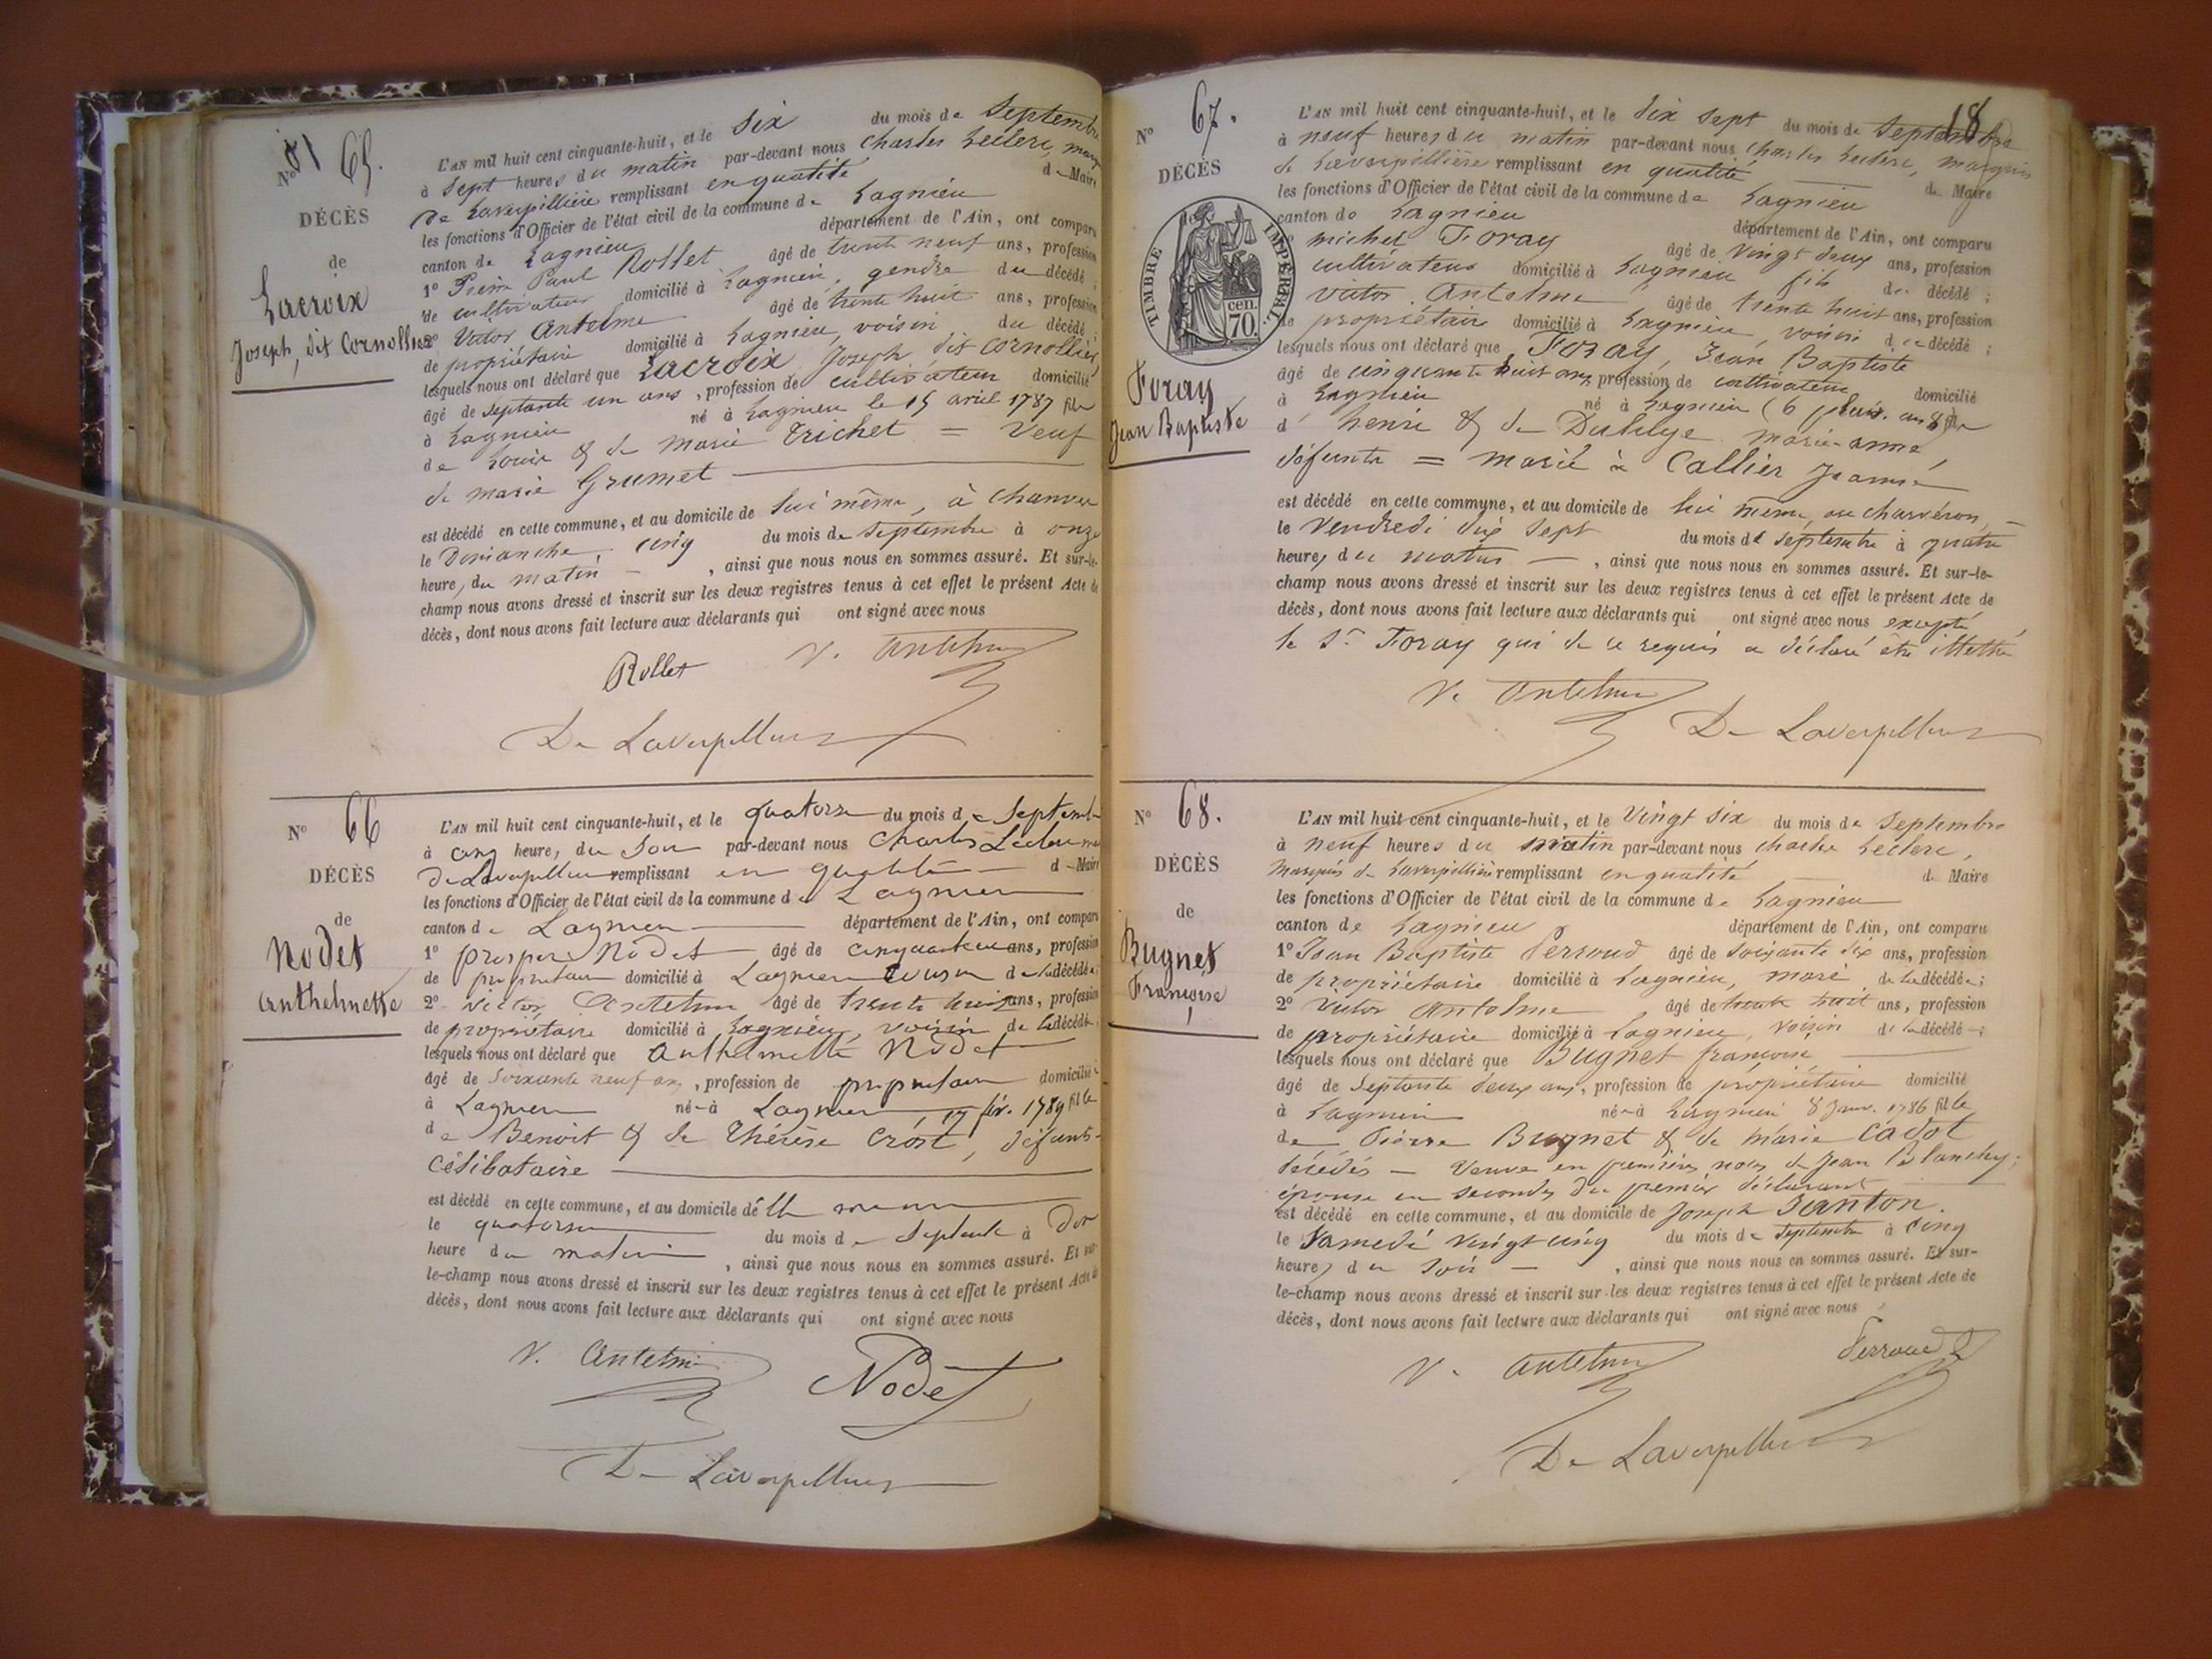 81
N° 65.
DÉCÈS
de
Lacroix
Joseph, dit Cornollier
L'AN mil huit cent cinquante-huit, et le six du mois de Septembre
à sept heures du matin par-devant nous Charles Leclerc, marquis
de Laverpillière remplissant en qualité de Maire
les fonctions d'Officier de l'état civil de la commune de Lagnieu
canton de Lagnieu département de l'Ain, ont comparu
1° Pierre Paul Rollet âgé de trente neuf ans, profession
de cultivateur domicilié à Lagnieu, gendre du décédé ;
2° Victor Antelme âgé de trente huit ans, profession
de propriétaire domicilié à Lagnieu, voisin du décédé ;
lesquels nous ont déclaré que Lacroix Joseph dit Cornollier,
âgé de septante un ans, profession de cultivateur domicilié
à Lagnieu né à Lagnieu le 15 avril 1787 fils
de Louis & de Marie Trichet = Veuf
de Marie Grumet
est décédé en cette commune, et au domicile de lui même, à Chanvre
le Dimanche, cinq du mois de septembre à onze
heure, du matin , ainsi que nous nous en sommes assuré. Et sur-le-
champ nous avons dressé et inscrit sur les deux registres tenus à cet effet le présent Acte de
décès, dont nous avons fait lecture aux déclarants qui ont signé avec nous
Rollet V. Antelme
De Laverpilliere
N° 66
DÉCÈS
de
Nodet
Anthelmette
L'AN mil huit cent cinquante-huit, et le quatorze du mois de Septembre
à cinq heure, du soir par-devant nous Charles Leclerc
De Laverpilliere remplissant en qualité de Maire
les fonctions d'Officier de l'état civil de la commune de Lagnieu
canton de Lagnieu département de l'Ain, ont comparu
1° prosper Nodet âgé de cinquante un ans, profession
de propriétaire domicilié à Lagnieu cousin de la décédée ;
2° Victor Antelme âgé de trente huit ans, profession
de propriétaire domicilié à Lagnieu, voisin de la décédée
lesquels nous ont déclaré que Anthelmette Nodet
âgé de soixante neuf ans, profession de propriétaire domiciliée
à Lagnieu née à Lagnieu 17 fév. 1789 fille
de Benoit & de Thérèse Crost, défunts
Célibataire
est décédé en cette commune, et au domicile d'elle même
le quatorze du mois de Septembre à
heure du matin , ainsi que nous nous en sommes assuré. Et sur-
le-champ nous avons dressé et inscrit sur les deux registres tenus à cet effet le présent Acte de
décès, dont nous avons fait lecture aux déclarants qui ont signé avec nous
V. Antelme Nodet
De Laverpilliere
18
N° 67.
DÉCÈS
TIMBRE IMPÉRIAL.
cen. 70.
Foray
Jean Baptiste
L'AN mil huit cent cinquante-huit, et le dix sept du mois de Septembre
à neuf heures du matin par-devant nous Charles Leclerc, marquis
de Laverpillière remplissant en qualité de Maire
les fonctions d'Officier de l'état civil de la commune de Lagnieu
canton de Lagnieu département de l'Ain, ont comparu
michel Foray âgé de vingt deux ans, profession
cultivateur domicilié à Lagnieu fils du décédé ;
Victor Antelme âgé de trente huit ans, profession
de propriétaire domicilié à Lagnieu, voisin du décédé ;
lesquels nous ont déclaré que Foray, Jean Baptiste
âgé de cinquante huit ans, profession de cultivateur domicilié
à Lagnieu né à Lagnieu (6 pluv. an 8) fils
d' henri & de Deluye Marie-anne
défunts = marié à Callier Jeanne
est décédé en cette commune, et au domicile de lui même, au charvéron,
le Vendredi dix sept du mois de septembre à quatre
heure, du matin , ainsi que nous nous en sommes assuré. Et sur-le-
champ nous avons dressé et inscrit sur les deux registres tenus à cet effet le présent Acte de
décès, dont nous avons fait lecture aux déclarants qui ont signé avec nous excepté
le Sr Foray qui de ce requis a déclaré être illettré
V. Antelme
De Laverpilliere
N° 68.
DÉCÈS
de
Bugnet
Françoise
L'AN mil huit cent cinquante-huit, et le Vingt six du mois de Septembre
à neuf heures du matin par-devant nous Charles Leclerc,
Marquis de Laverpillière remplissant en qualité de Maire
les fonctions d'Officier de l'état civil de la commune de Lagnieu
canton de Lagnieu département de l'Ain, ont comparu
1° Jean Baptiste Perroud âgé de soixante dix ans, profession
de propriétaire domicilié à Lagnieu, mari de la décédée ;
2° Victor Antelme âgé de trente huit ans, profession
de propriétaire domicilié à Lagnieu, voisin de la décédée ;
lesquels nous ont déclaré que Bugnet françoise
âgé de septante deux ans, profession de propriétaire domicilié
à Lagnieu née à Lagnieu 8 Janv. 1786 fille
de Pierre Bugnet & de Marie Cadot
décédés — Veuve en premières noces de Jean Blanchy ;
épouse en secondes du premier déclarant
est décédé en cette commune, et au domicile de Joseph Janton.
le Samedi vingt cinq du mois de septembre à cinq
heures du soir — , ainsi que nous nous en sommes assuré. Et sur-
le-champ nous avons dressé et inscrit sur les deux registres tenus à cet effet le présent Acte de
décès, dont nous avons fait lecture aux déclarants qui ont signé avec nous
V. Antelme Perroud
De Laverpilliere